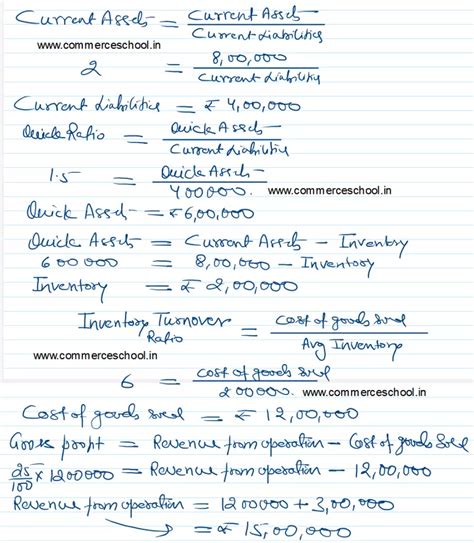 Current Assets = Current Assets / Current Liabilities
www.commerceschool.in
2 = 8,00,000 / Current Liabilities
Current Liabilities = ₹ 4,00,000
Quick Ratio = Quick Assets / Current Liabilities
1.5 = Quick Assets / 400000. www.commerceschool.in
Quick Assets = ₹6,00,000
Quick Assets = Current Assets - Inventory
600000 = 8,00,000 - Inventory
Inventory = ₹ 2,00,000
Inventory Turnover Ratio = Cost of goods sold / Avg Inventory
www.commerceschool.in
6 = Cost of goods sold / 200000. www.commerceschool.in
Cost of goods sold = ₹ 12,00,000
Gross profit = Revenue from operation - Cost of Goods Sold
25/100 x 1200000 = Revenue from operation - 12,00,000
Revenue from operation = 1200000 + 3,00,000
= ₹ 15,00,000